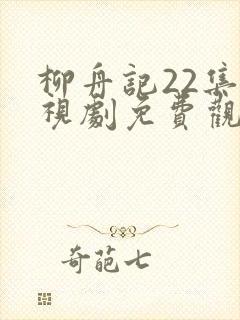 柳舟記22集
視劇免費觀
奇葩七